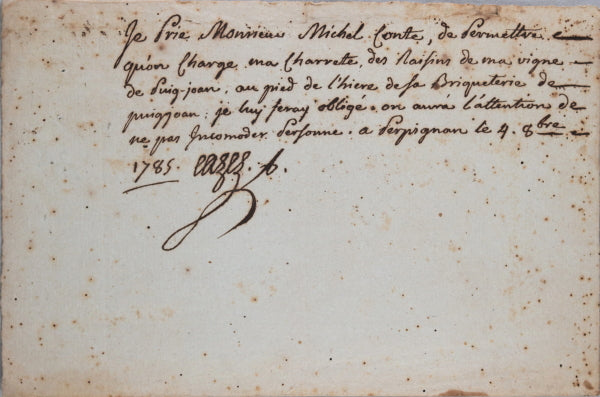 Je Prie Monsieur Michel Conte, de Permettre
qu'on Charge ma Charrete, des Raisins de ma vigne
de Puig-joan, au pied de l'hiere de sa Briqueterie de
puigjoan; je luy seray obligé. on aura l'attention de
ne pas Incomoder Personne. a Perpignan le 4. 8bre
1785.